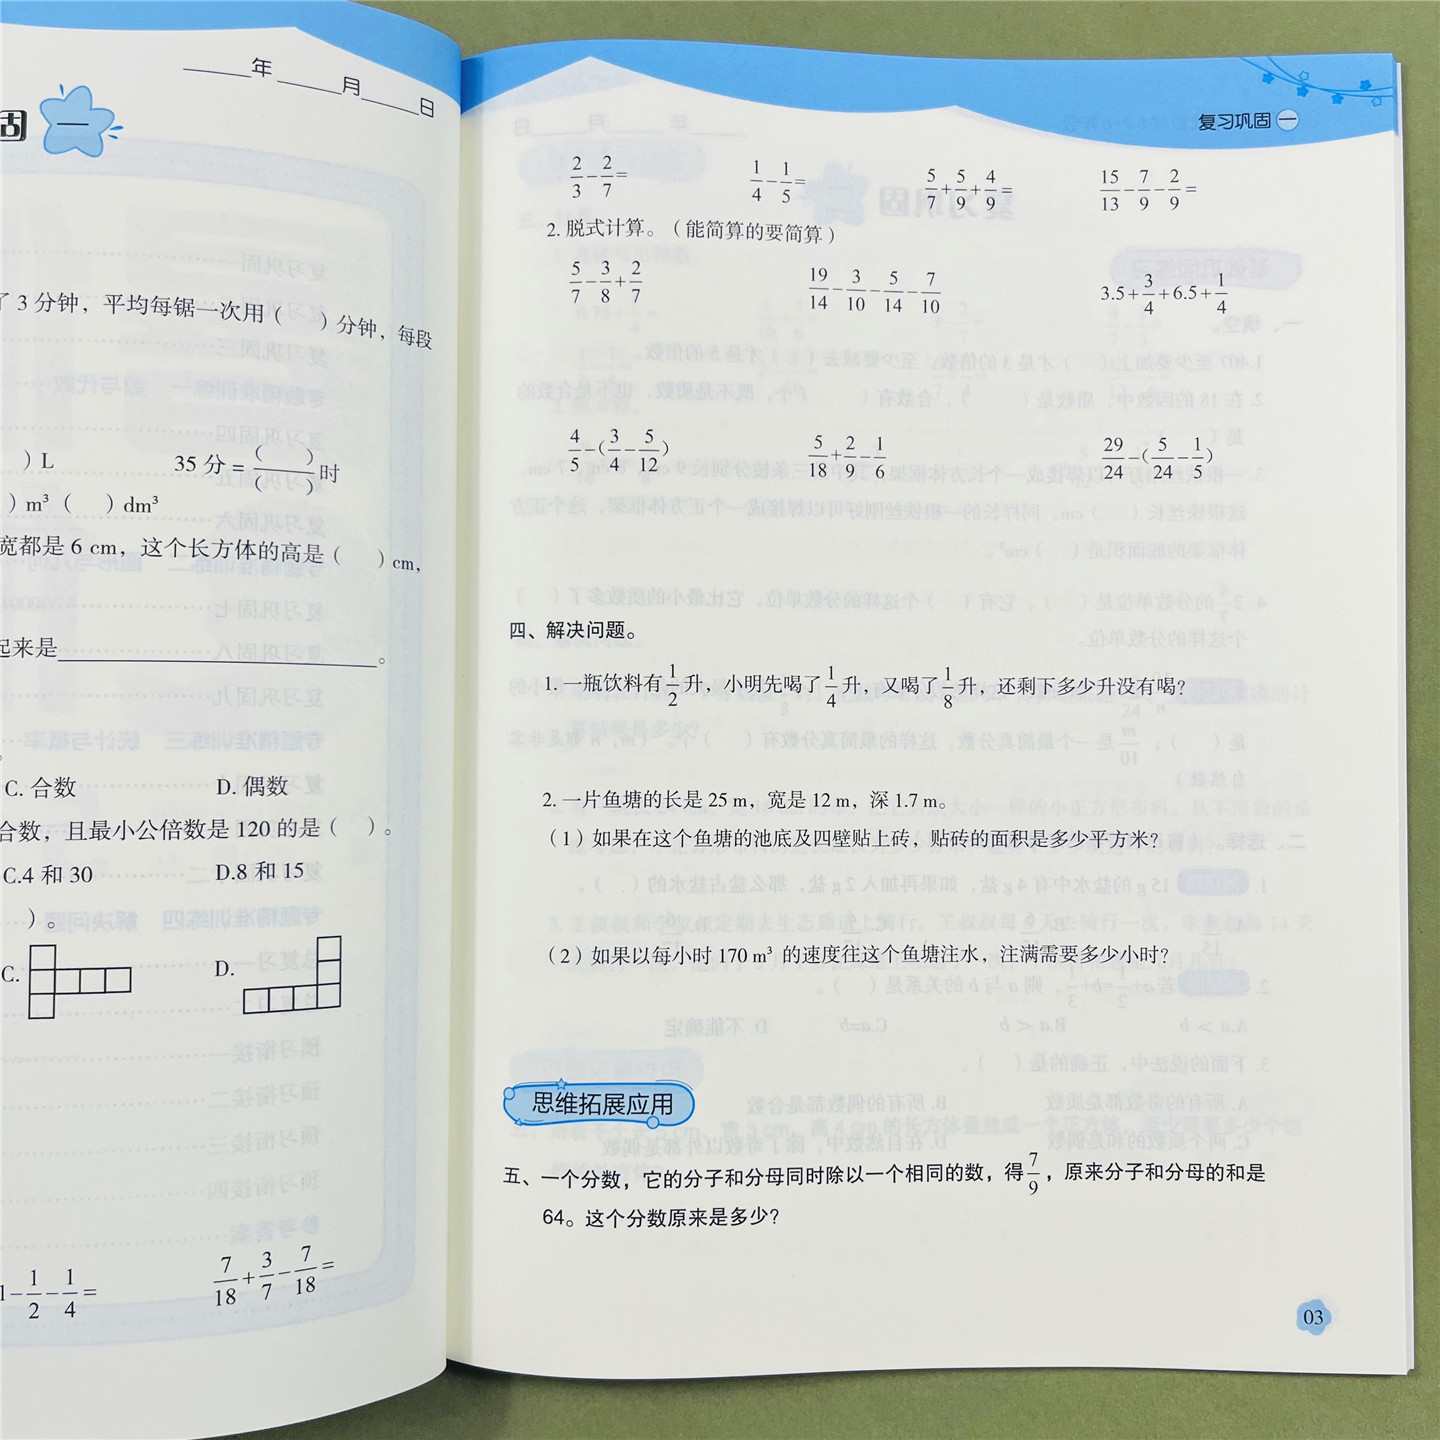 ____年____月____日
固 一
了 3 分钟，平均每锯一次用（　　）分钟，每段
）L　　35 分 = (　　)/(　　) 时
）m³（　　）dm³
宽都是 6 cm，这个长方体的高是（　　）cm，
起来是____________。
C. 合数　　D. 偶数
合数，且最小公倍数是 120 的是（　　）。
C.4 和 30　　D.8 和 15
）。
C.　　D.
1-1/2-1/4=　　7/18+3/7-7/18=
复习巩固 一
2/3-2/7=　　1/4-1/5=　　5/7+5/9+4/9=　　15/13-7/9-2/9=
2. 脱式计算。（能简算的要简算）
5/7-3/8+2/7　　19/14-3/10-5/14-7/10　　3.5+3/4+6.5+1/4
4/5-(3/4-5/12)　　5/18+2/9-1/6　　29/24-(5/24-1/5)
四、解决问题。
1. 一瓶饮料有1/2升，小明先喝了1/4升，又喝了1/8升，还剩下多少升没有喝？
2. 一片鱼塘的长是 25 m，宽是 12 m，深 1.7 m。
（1）如果在这个鱼塘的池底及四壁贴上砖，贴砖的面积是多少平方米？
（2）如果以每小时 170 m³ 的速度往这个鱼塘注水，注满需要多少小时？
思维拓展应用
五、一个分数，它的分子和分母同时除以一个相同的数，得7/9，原来分子和分母的和是
64。这个分数原来是多少？
03